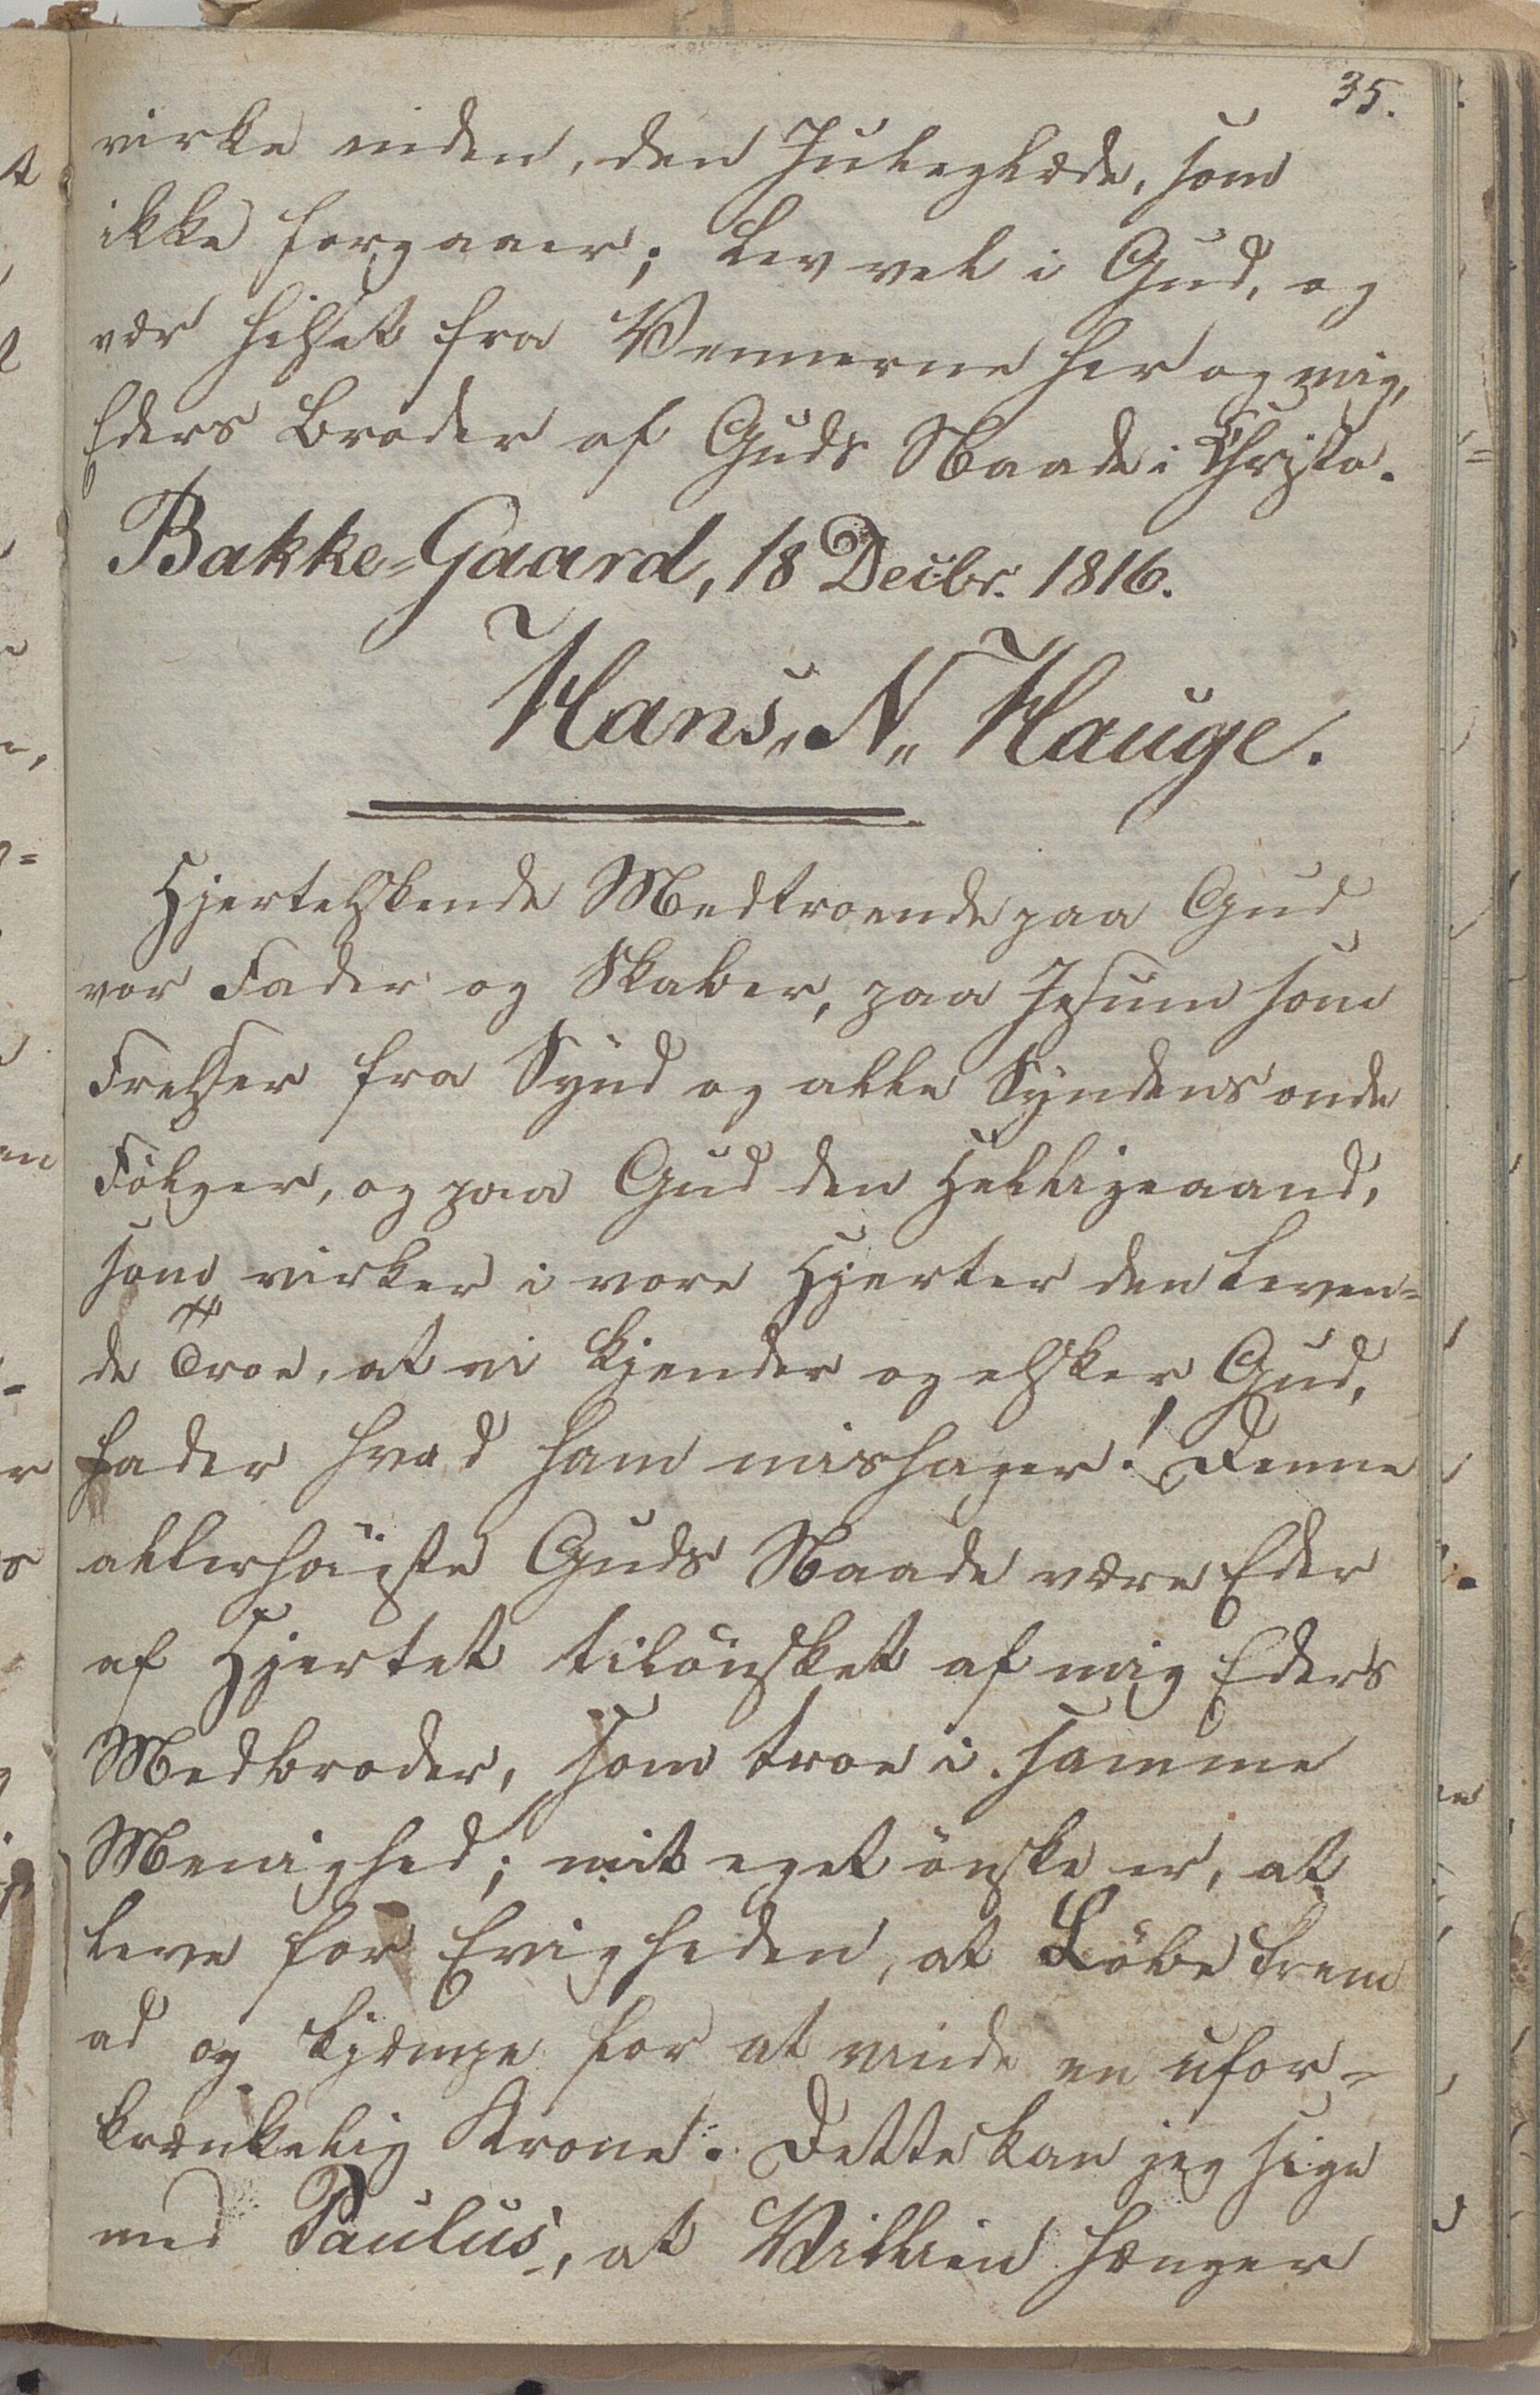 35.
virke inden, den Juleglæde, som
ikke forgaaer; Lev vel i Gud, og
vær hilset fra Vennerne her og mig,
Eders Broder af Guds Naade i Christo.
Bakke-Gaard, 18 Decbr. 1816.
Hans„ N„ Hauge.
Hjertelskende Medtroende paa Gud
vor Fader og Skaber, paa Jesum som
Frelser fra Synd og alle Syndens onde
Følger, og paa Gud den Helligeaand,
som virker i vore Hjerter den leven=
de Troe, at vi kjender og elsker Gud,
hader hvad ham mishager! Denne
allerhøieste Guds Naade være Eder
af Hjertet tilønsket af mig Eders
Medbroder, som troe i samme
Menighed; mit eget ønske er, at
leve for Evigheden, at Löbe frem
ad og kjæmpe for at vinde en ufor=
krænkelig Krone. Dette kan jeg sige
med Paulus, at Villien hænger